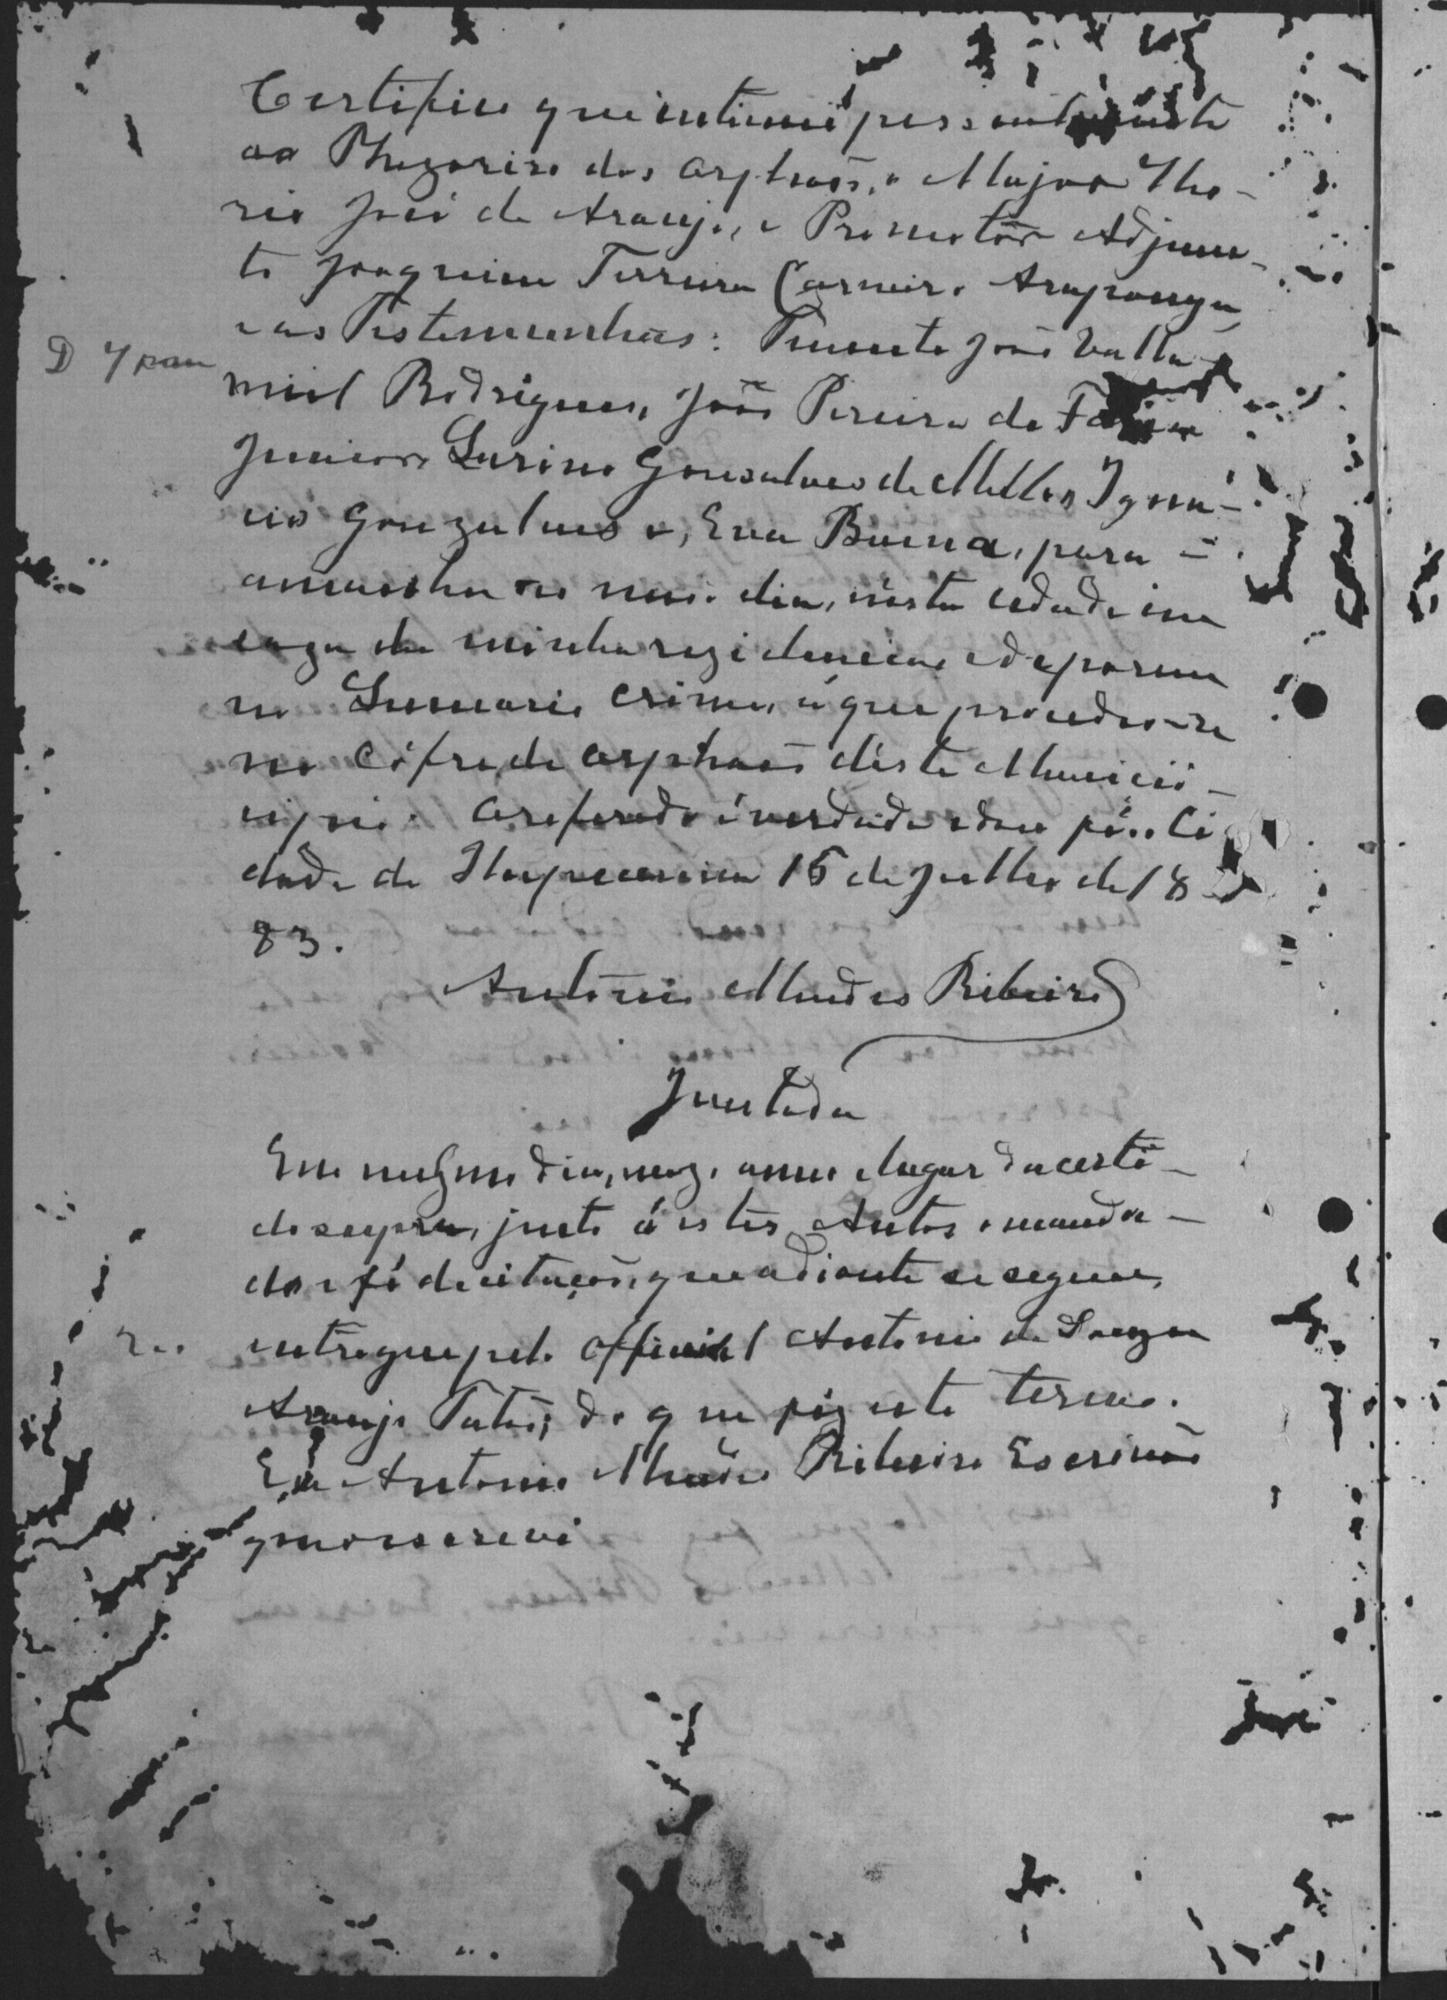 Certifico que intimei pessoalmente
ao Thezoreiro dos orphaõs, o Major Tho-
rio José de Araujo, o Promotôr Adjun-
to Joaquim Ferreira Carneiro Araponga
e as Testemunhas: Tenente João Valla-
D
miel Rodrigues, João Pereira de Faria
Junior Lurino Gonsalves de Mello Igná-
cio Gonzalves e, Eva Buena, para -
amanhan ao meio dia, nésta cidade em
caza da minha rezidencia e deporem
no Summario crime, á que procede-se
no Côfre de orphaõs déste Munici-
cipio. O referido é verdade e dou fé. Ci
dade de Itapecerica 16 de Julho de 18
83.
Antônio Mendes Ribeiro
Juntada
Em mesmo dia, mez, anno e lugar da certi-
do supra, junto á estes Autos o manda-
do e fé de citaçaõ, que adiante se segue,
entregue pelo Official Antonio de Souza
Araujo do que fiz este termo.
Eu Antonio Mendes Ribeiro Escrivaõ
que o escrevi